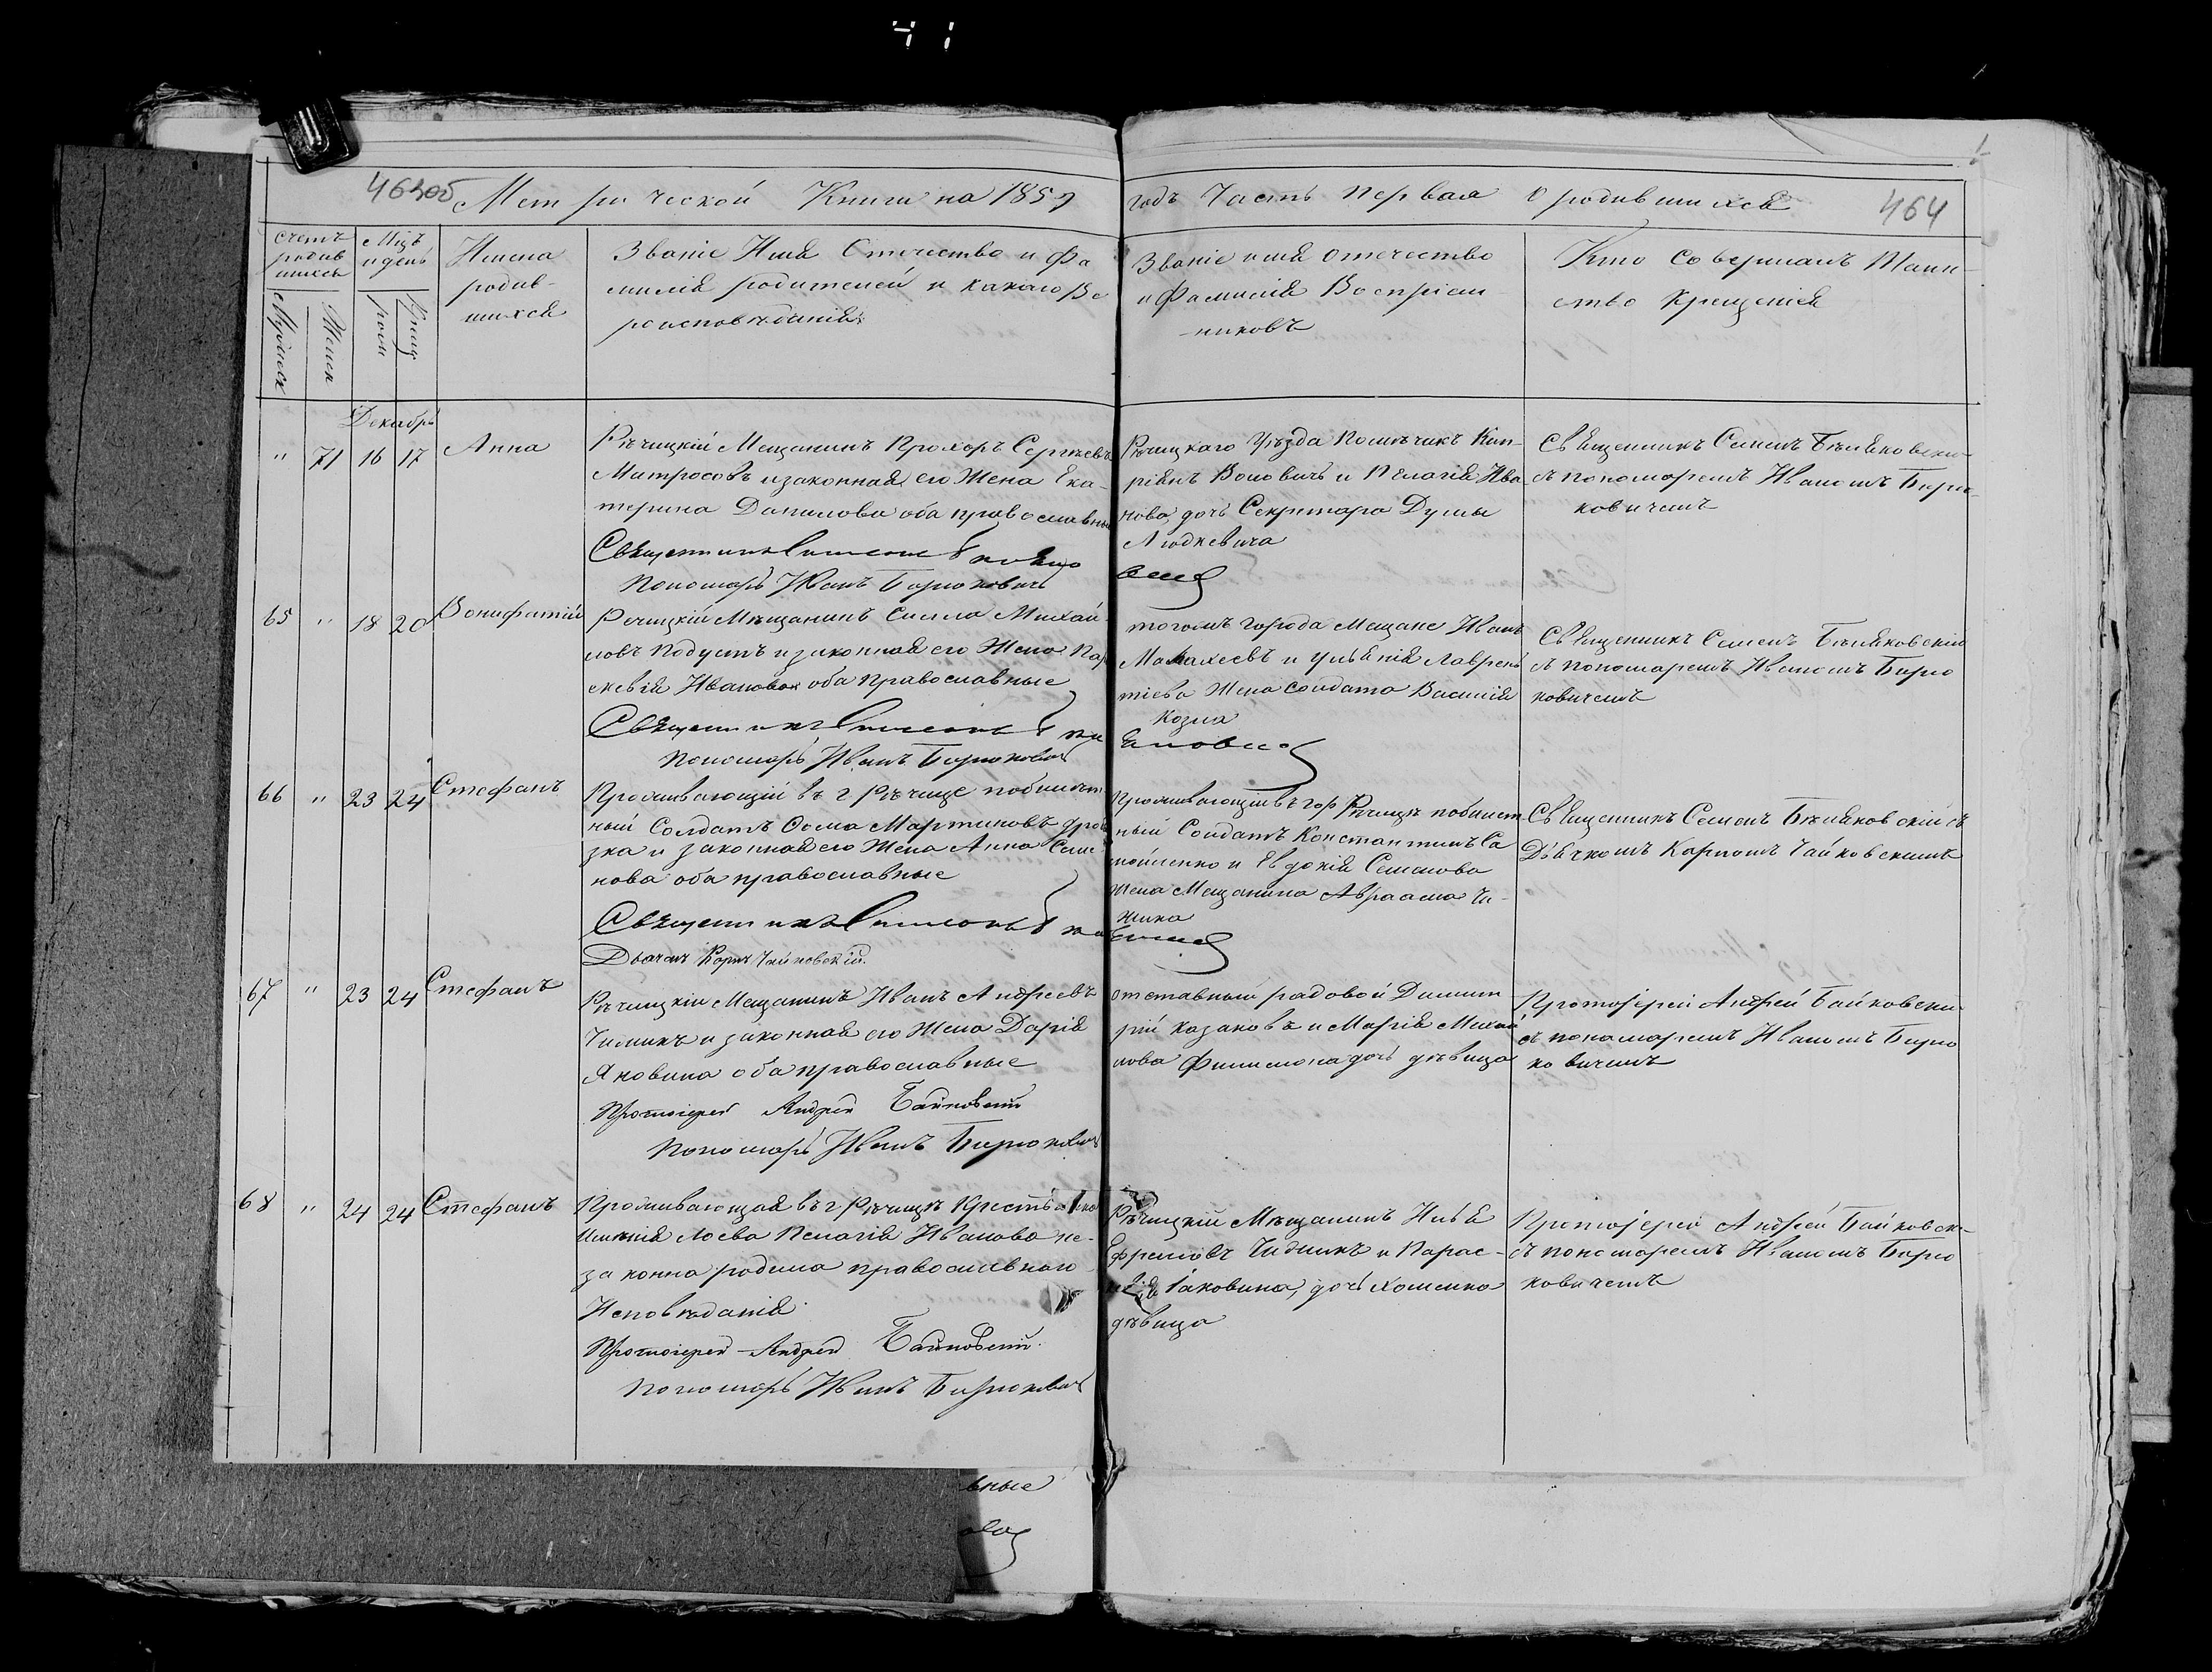 463об Метрической Книги на 1859 годъ Часть первая о родившихся 464
счетъ родившихся
Мцъ и день
Имена родившихся
Званіе Имя Отечество и Фамилія родителей и какого Вероисповѣданія
Званіе имя отечество и Фамилія Воспріемниковъ
Кто Совершалъ Таинство Крещенія
Мужеск
Женск
рожд
Крещ
Декабрь
" 71 16 17 Анна
Рѣчицкій Мещанинъ Прохоръ Сергѣевъ
Матросовъ и законная его Жена Ека-
терина Данилова оба православные
Священникъ Симеонъ
Пономарь Иванъ Бирюковичъ
Рѣчицкаго Уѣзда Помѣщикъ Кип-
ріянъ Воловичь и Пелагія Ива
нова дочь Секретаря Думы
Людкевича
Священникъ Семенъ Бѣляковскій
съ пономаремъ Иваномъ Бирю-
ковичемъ
65 " 18 20 Вонифатій
Речицкій Мѣщанинъ Сила Михай-
ловъ Подустъ и законная его Жена Пар
скевія Иванова оба Православные
Священникъ Симеонъ
Пономарь Иванъ Бирюковичъ
тогожъ города Мещане Иванъ
Малахеевъ и Уліянія Лаврень
тіева Жена Солдата Василія
Козла
Священникъ Семенъ Бѣляковскій
съ пономаремъ Иваномъ Бирю
ковичемъ
66 " 23 24 Стефанъ
Проживающій въ г Рѣчице побилет
ный Солдатъ Фома Мартиновъ
зка и законная его Жена Анна Семе
нова оба православные
Священникъ Симеонъ
Дьячокъ Карпъ Чайковскій.
Проживающій въ гор Рѣчицѣ побилет
ный Солдатъ Константинъ Са
мойленко и Евдокія Семенова
жена Мещанина Авраама Чи-
жика
Священникъ Семенъ Бѣляковскій съ
Дьячкомъ Карпомъ Чайковскимъ
67 " 23 24 Стефанъ
Рѣчицкій Мещанинъ Иванъ Андреевъ
Чижикъ и законная его Жена Дарія
Яковина оба православные
Протоіерей Андрей Байковскій
Пономарь Иванъ Бирюковичъ
отставный рядовой Димит
рій Казаковъ и Марія Михай
лова Филимона дочь дѣвица
Протоіерей Андрей Байковскій
съ пономаремъ Иваномъ Бирю
ковичемъ
68 " 24 24 Стефанъ
Проживающая въ г Рѣчицѣ Крестьянка
Имѣнія Лоева Пелагія Иванова не-
законно родила православнаго
Исповѣданія
Протоіерей Андрей Байковскій.
Пономарь Иванъ Бирюковичъ
Рѣчицкій Мѣщанинъ Илья
Ефремовъ Чижикъ и Парас-
Іаковина, дочь Хоменка
дѣвица
Протоіерей Андрей Байковск-
съ пономаремъ Иваномъ Бирю
ковичемъ
вные